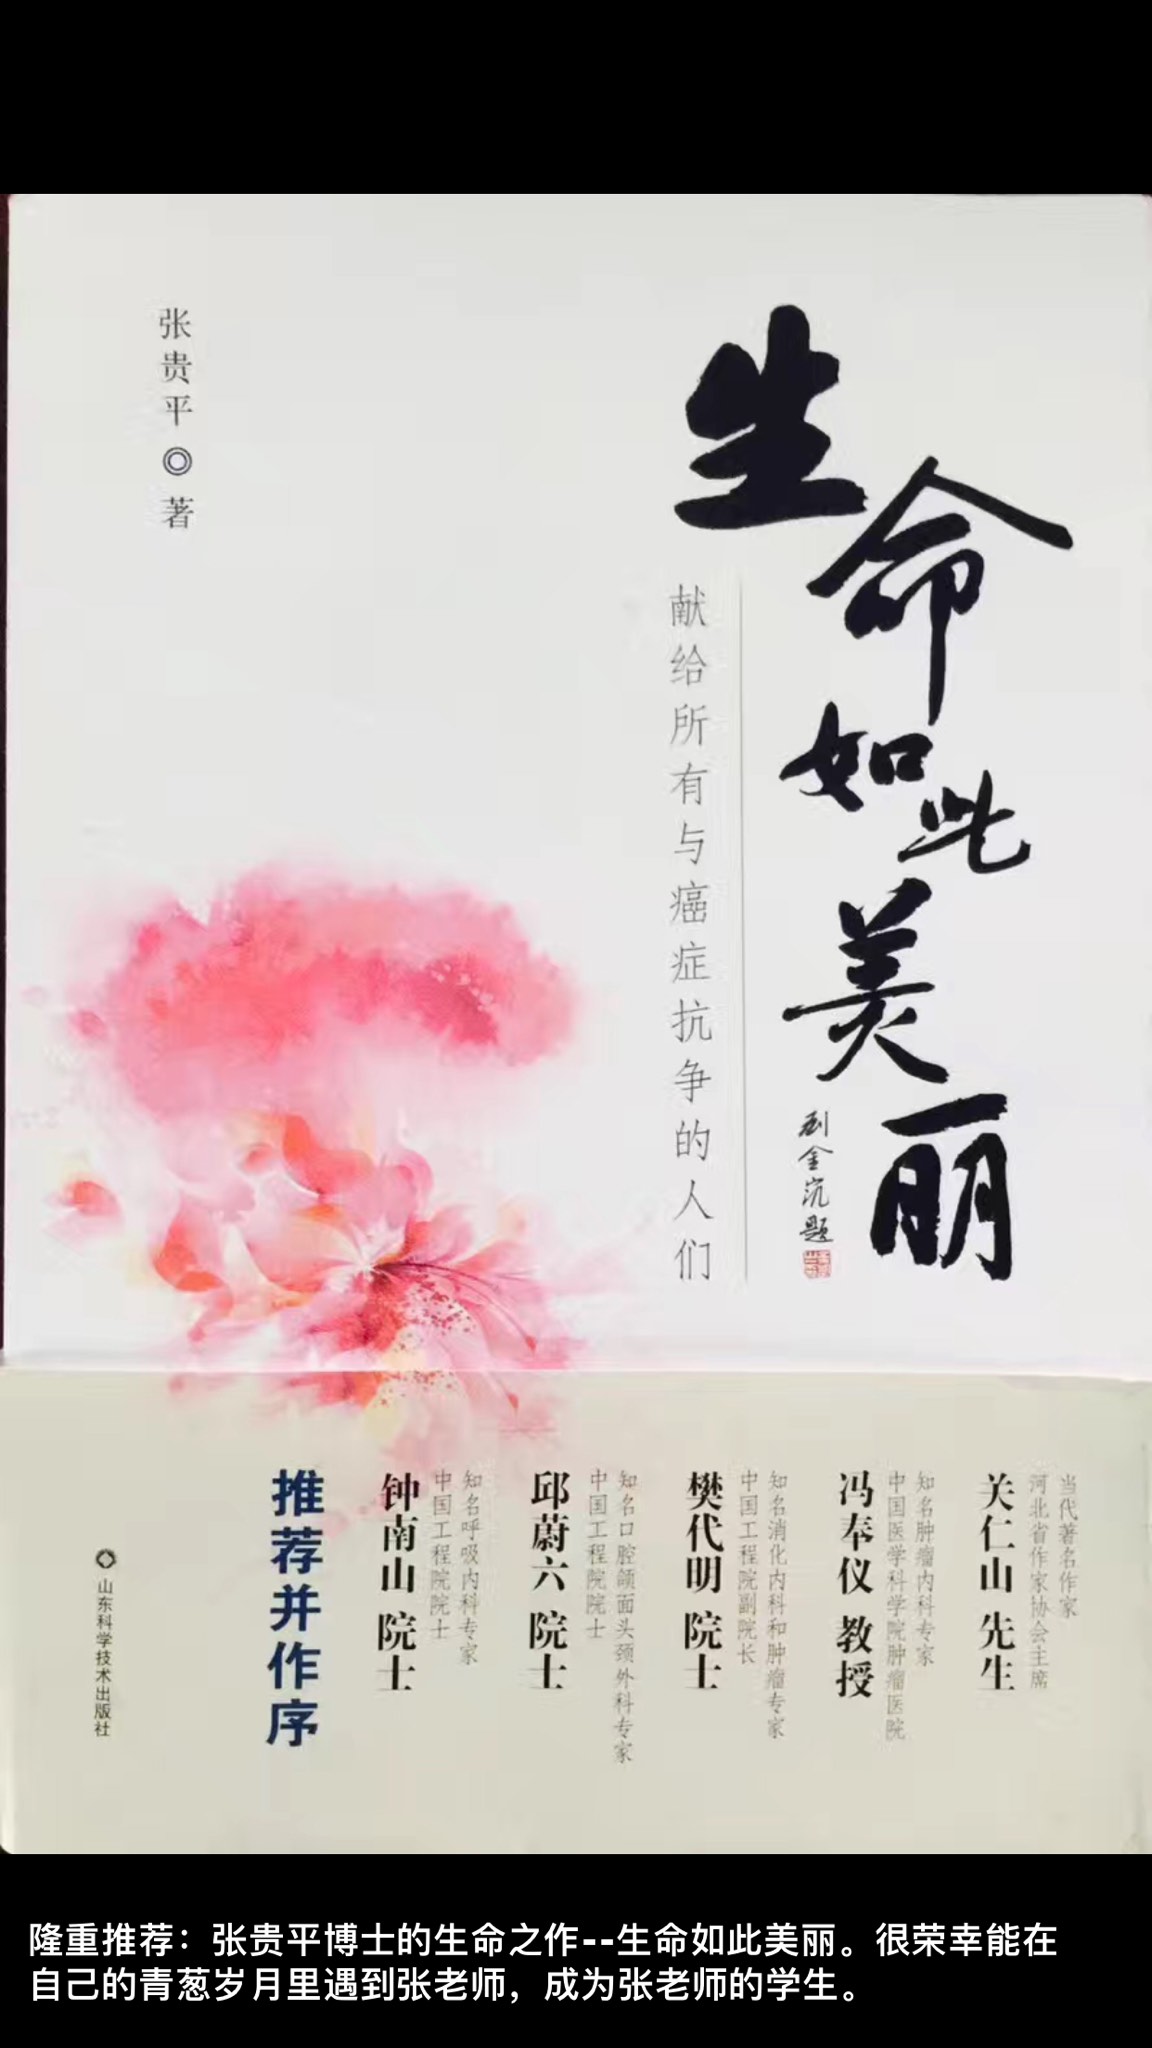 生命如此美丽
刘金沉题
献给所有与癌症抗争的人们
张贵平◎著
当代著名作家
河北省作家协会主席
关仁山 先生
知名肿瘤内科专家
中国医学科学院肿瘤医院
冯奉仪 教授
知名消化内科和肿瘤专家
中国工程院副院长
樊代明 院士
知名口腔颌面头颈外科专家
中国工程院院士
邱蔚六 院士
知名呼吸内科专家
中国工程院院士
钟南山 院士
推荐并作序
山东科学技术出版社
隆重推荐：张贵平博士的生命之作--生命如此美丽。很荣幸能在
自己的青葱岁月里遇到张老师，成为张老师的学生。